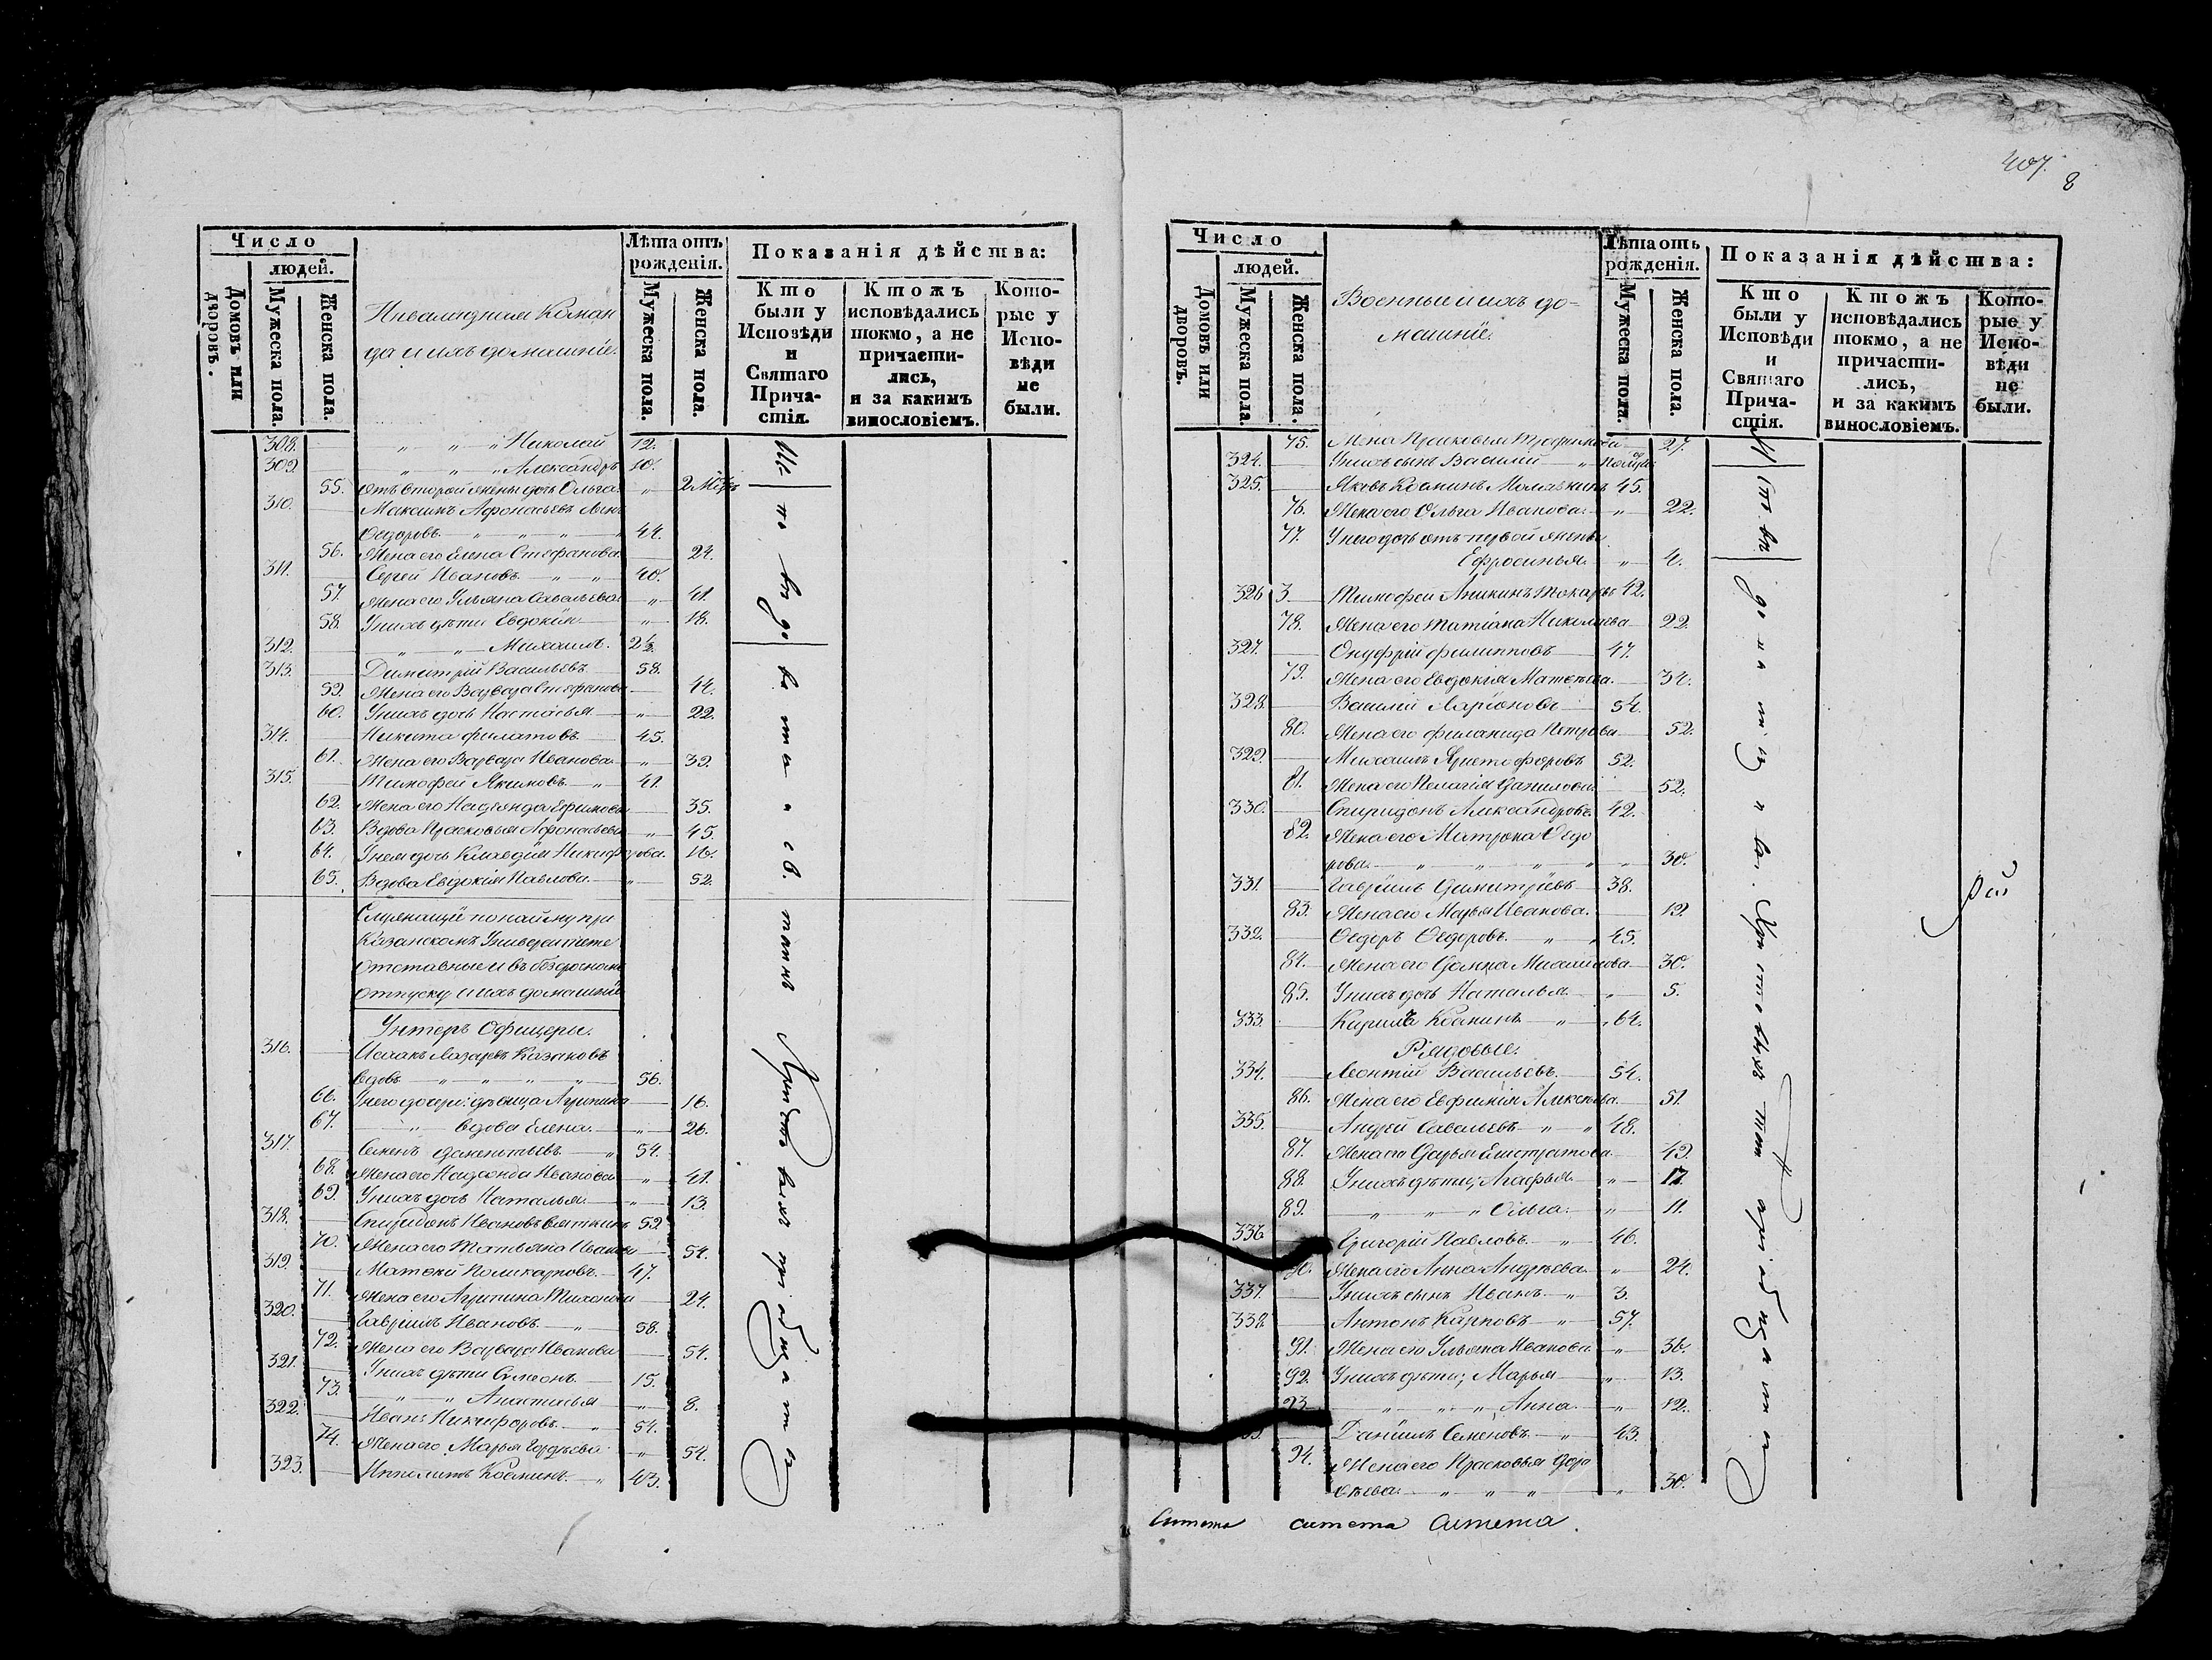 407.
8
Число
людей.
Домовъ или дворовъ.
Мужеска пола.
Женска пола.
Инвалидная Коман
да и ихъ домашніе.
Лѣта отъ рожденія.
Мужеска пола.
Женска пола.
Показанія дѣйства:
Кто были у Исповѣди и Святаго Причастія.
Ктожъ исповѣдались токмо, а не причастились, и за какимъ винословіемъ.
Которые у Исповѣди не были.
308. " " " Николай 12.
309. " " " Александръ 10.
55. Отъ второй жены дочь Ольга. " 2
310. Максимъ Афонасьевъ
Ѳедоровъ " " " " 44.
56. Жена его Елена Стефанова. 24.
311. Сергей Ивановъ " " 40.
57. Жена его Ульяна Савельева " 41.
58. У нихъ дѣти Евдокія " 18.
312. " " Михаилъ. 2½.
313. Димитрій Васильевъ 58.
59. Жена его Варвара Стефанова 44.
60. У нихъ дочь Настасья " 22.
314. Никита Филатовъ 45.
61. Жена его Варвара Иванова " 39.
315. Тимофей Якимовъ " 41.
62. Жена его Надежда Ефимова 35.
63. Вдова Прасковья Афонасьева " 45.
64. У нея дочь Клавдія Никифорова. 16.
65. Вдова Евдокія Павлова " 52.
Служащіе по найму при
Казанскомъ Университете
отставные и въ безсрочномъ
отпуску и ихъ домашніе
Унтеръ Офицеры.
316. Исаакъ Лазаревъ Казаковъ
вдовъ " " " " 56.
66. У него дочери: дѣвица Агрипина 16.
67. " вдова Елена. " 26.
317. Семенъ Дементьевъ " 54.
68. Жена его Надежда Иванова " 41.
69. У нихъ дочь Наталья " 13.
318. Спиридонъ Ивановъ Вяткинъ 59.
70. Жена его Татьяна Иванова 54.
319. Матвей Поликарповъ. 47.
71. Жена его Агрипина Тихонова 24.
320. Гавріилъ Ивановъ " 58.
72. Жена его Варвара Иванова 54.
321. У нихъ дѣти Симеонъ 15.
73. " " Анастасья " 8.
322. Иванъ Никифоровъ " 54.
74. Жена его Марья Гордѣева " 54.
323. Ипполитъ Козминъ " 43.
Число
людей.
Домовъ или дворовъ.
Мужеска пола.
Женска пола.
Военные и ихъ до-
машніе.
Лѣта отъ рожденія.
Мужеска пола.
Женска пола.
Показанія дѣйства:
Кто были у Исповѣди и Святаго Причастія.
Ктожъ исповѣдались токмо, а не причастились, и за какимъ винословіемъ.
Которые у Исповѣди не были.
75. Жена Прасковья Трофимова 27.
324. У нихъ сынъ Василій "
325. Яковъ Козминъ 45.
76. Жена его Ольга Иванова. " 22.
77. У него дочь отъ первой жены
Ефросинья. " 4.
326 3 Тимофей Аникинъ Токаревъ 42.
78. Жена его Татіана Николаева 22.
327. Онуфрій Филипповъ 47.
79. Жена его Евдокія Матвѣева. 34.
328. Василій Ларіоновъ 54.
80. Жена его Филанида Петрова 52.
329. Михаилъ Христофоровъ 52.
81. Жена его Пелагія Данилова 52.
330. Спиридонъ Александровъ 42.
82. Жена его Матрона Ѳедо
рова " " " " " 30.
331. Гавріилъ Димитріевъ 38.
83. Жена его Марья Иванова. 19.
332. Ѳедоръ Ѳедоровъ " " 45.
84. Жена его Домна Михайлова 30.
85. У нихъ дочь Наталья " 5.
333. Кирилъ Козминъ " " 64.
Рядовые.
334. Леонтій Васильевъ. 54.
86. Жена его Евфимія Алексѣева. 51.
335. Андрей Савельевъ " " 48.
87. Жена его Дарья Елистратова. 49.
88. У нихъ дѣти; Агафья " 17.
89. " " " Ольга. " 11.
336 Григорій Павловъ " 46.
90. Жена его Анна Андрѣева. " 24.
337. У нихъ сынъ Иванъ " 3.
338. Антонъ Карповъ " 57.
91. Жена его Ульяна Иванова " 36.
92. У нихъ дѣти; Марья " 13.
93. " " " Анна. " 12.
Даніилъ Семеновъ " 43.
94. Жена его Прасковья Доро
ѳѣева " " " " 30.